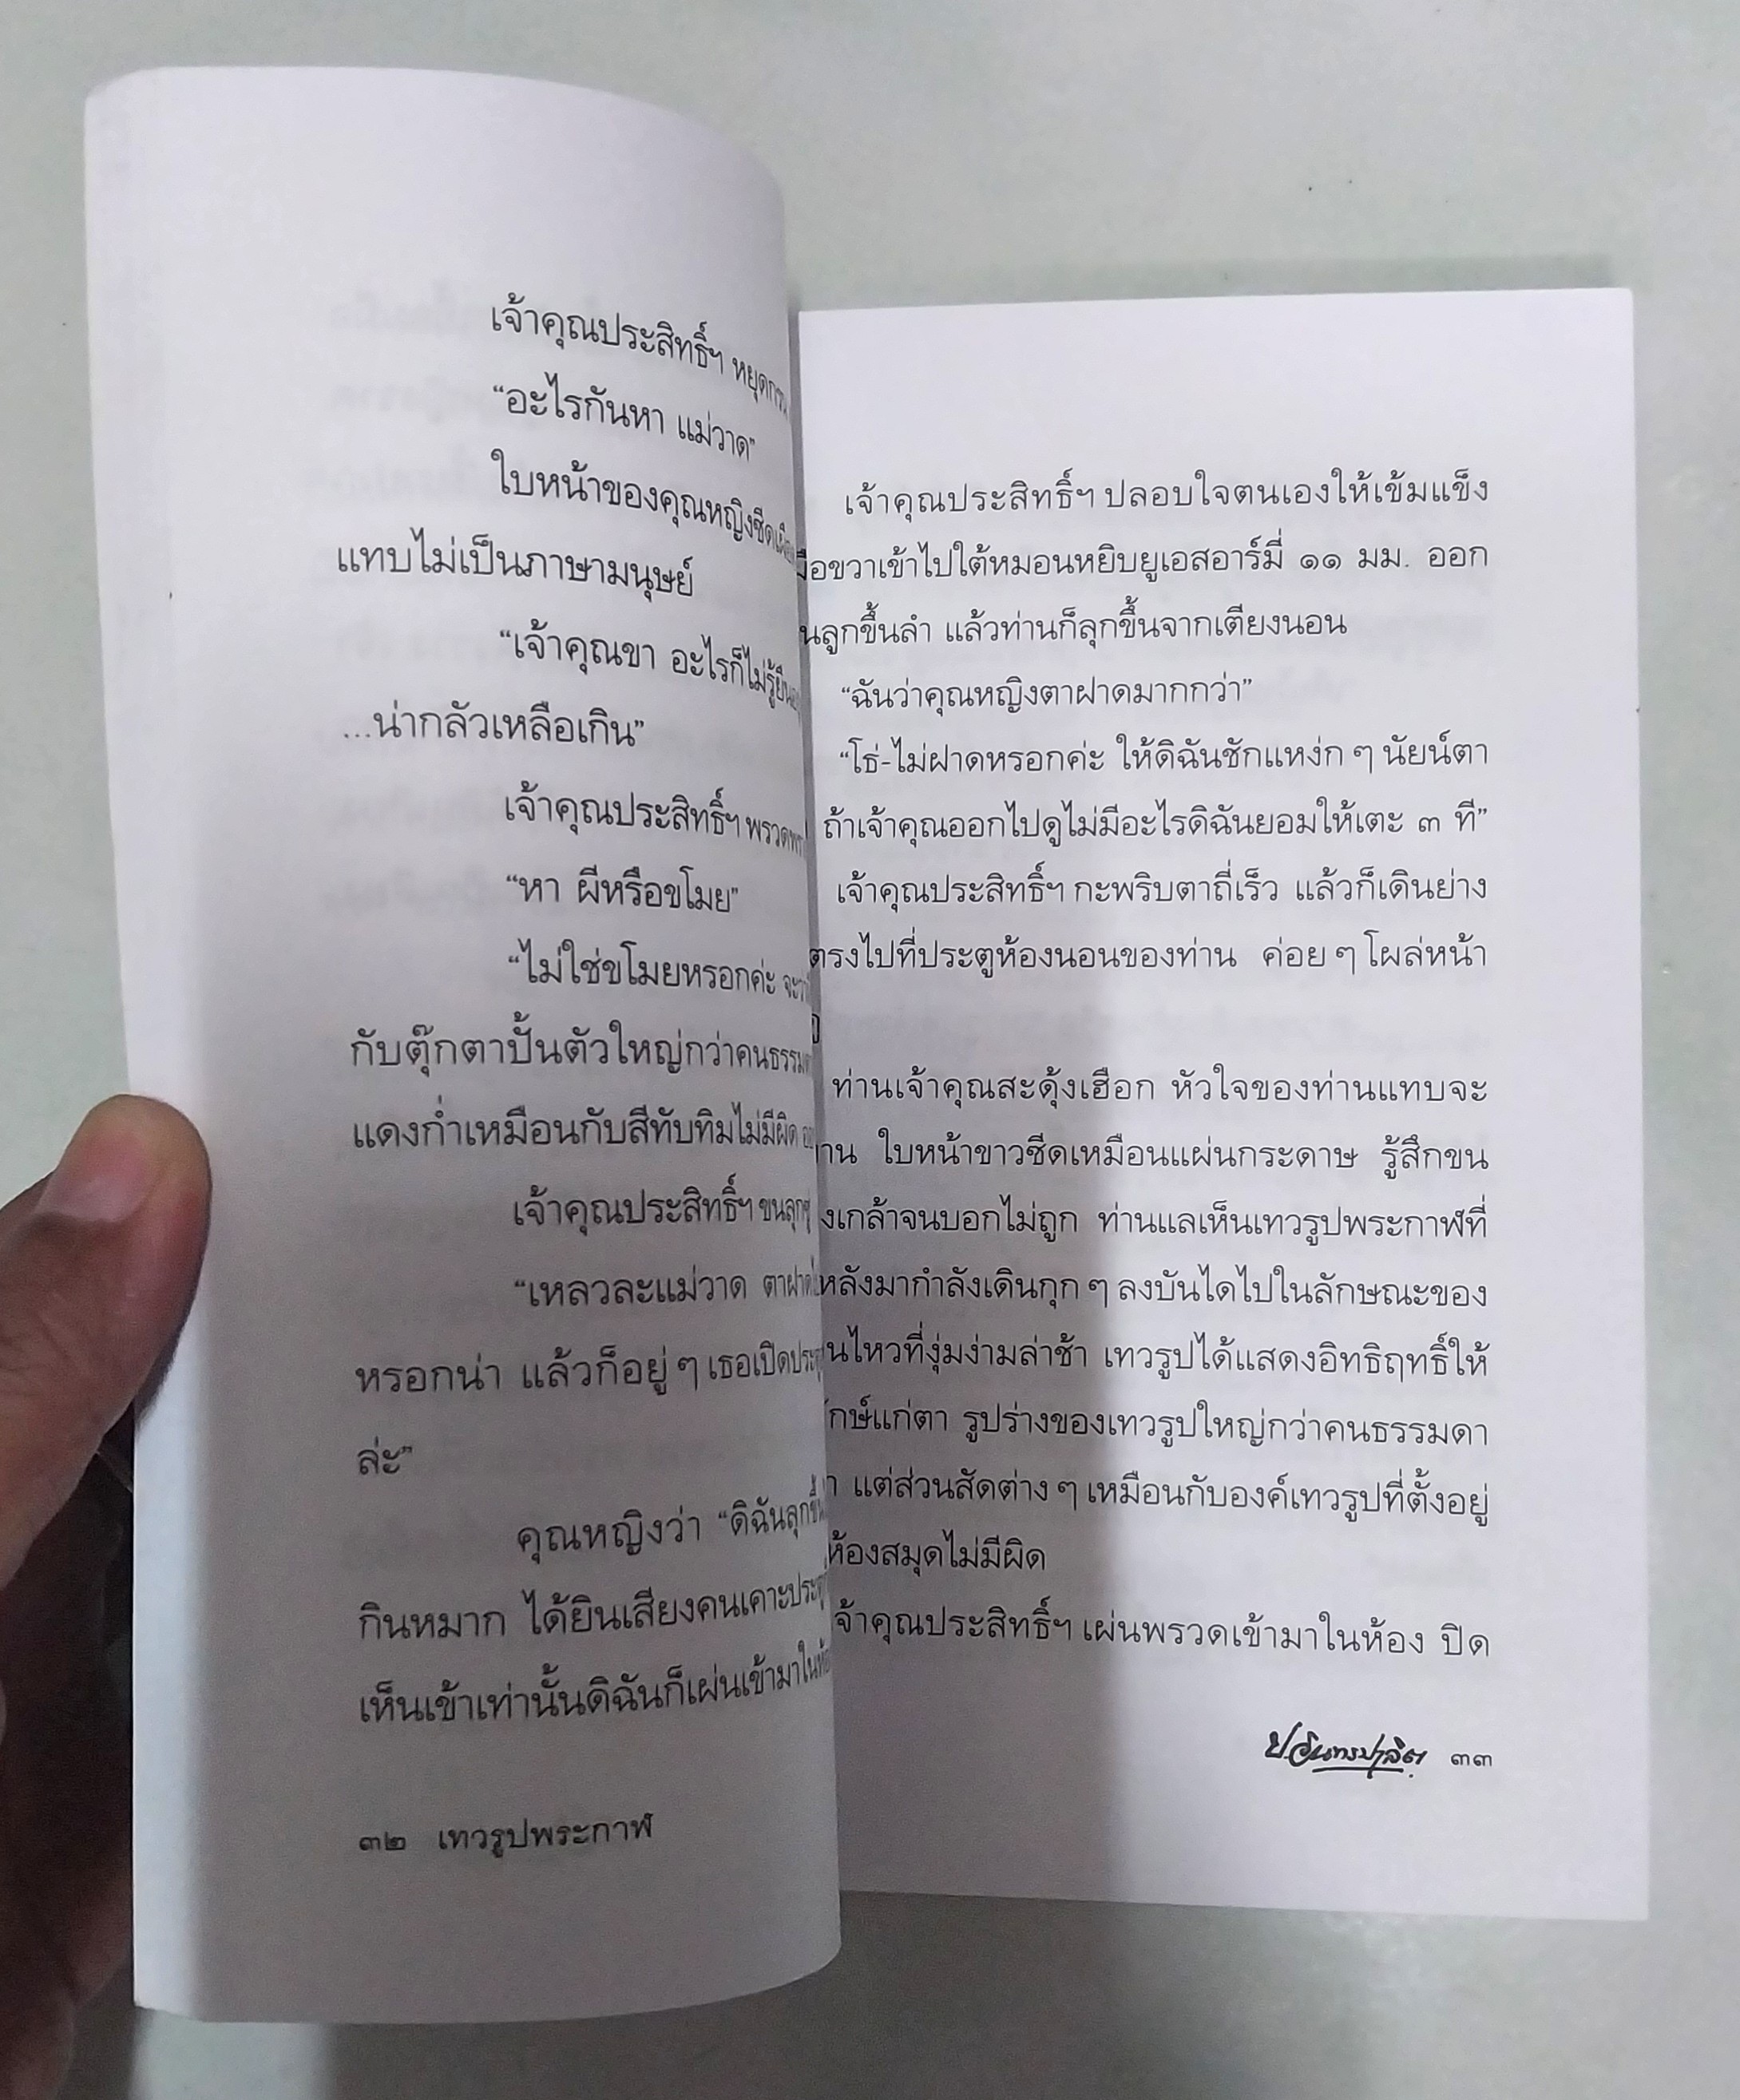 เจ้าคุณประสิทธิ์ฯ
“อะไรกันหา แม่วาด”
ใบหน้าของคุณหญิงซีดเผือด
แทบไม่เป็นภาษามนุษย์
“เจ้าคุณขา อะไรก็ไม่รู้ยืน
...น่ากลัวเหลือเกิน”
เจ้าคุณประสิทธิ์ฯ พรวด
“หา ผีหรือขโมย”
“ไม่ใช่ขโมยหรอกค่ะ
กับตุ๊กตาปั้นตัวใหญ่กว่าคนธรรม
แดงก่ำเหมือนกับสีทับทิมไม่มีผิด
เจ้าคุณประสิทธิ์ฯ ขนลุก
“เหลวละแม่วาด ตาฝาด
หรอกน่า แล้วก็อยู่ ๆ เธอเปิดประตู
ล่ะ”
คุณหญิงว่า “ดิฉันลุกขึ้น
กินหมาก ได้ยินเสียงคนเคาะประตู
เห็นเข้าเท่านั้นดิฉันก็เผ่นเข้ามาใน
๓๒ เทวรูปพระกาฬ
เจ้าคุณประสิทธิ์ฯ ปลอบใจตนเองให้เข้มแข็ง
มือขวาเข้าไปใต้หมอนหยิบยูเอสอาร์มี่ ๑๑ มม. ออก
นลูกขึ้นลำ แล้วท่านก็ลุกขึ้นจากเตียงนอน
“ฉันว่าคุณหญิงตาฝาดมากกว่า”
“โธ่-ไม่ฝาดหรอกค่ะ ให้ดิฉันชักแหง่ก ๆ นัยน์ตา
ถ้าเจ้าคุณออกไปดูไม่มีอะไรดิฉันยอมให้เตะ ๓ ที”
เจ้าคุณประสิทธิ์ฯ กะพริบตาถี่เร็ว แล้วก็เดินย่าง
ตรงไปที่ประตูห้องนอนของท่าน ค่อย ๆ โผล่หน้า
ท่านเจ้าคุณสะดุ้งเฮือก หัวใจของท่านแทบจะ
าน ใบหน้าขาวซีดเหมือนแผ่นกระดาษ รู้สึกขน
งเกล้าจนบอกไม่ถูก ท่านแลเห็นเทวรูปพระกาฬที่
หลังมากำลังเดินกุก ๆ ลงบันไดไปในลักษณะของ
นไหวที่งุ่มง่ามล่าช้า เทวรูปได้แสดงอิทธิฤทธิ์ให้
ักษ์แก่ตา รูปร่างของเทวรูปใหญ่กว่าคนธรรมดา
า แต่ส่วนสัดต่าง ๆ เหมือนกับองค์เทวรูปที่ตั้งอยู่
ห้องสมุดไม่มีผิด
จ้าคุณประสิทธิ์ฯ เผ่นพรวดเข้ามาในห้อง ปิด
ป.อินทรปาลิต ๓๓